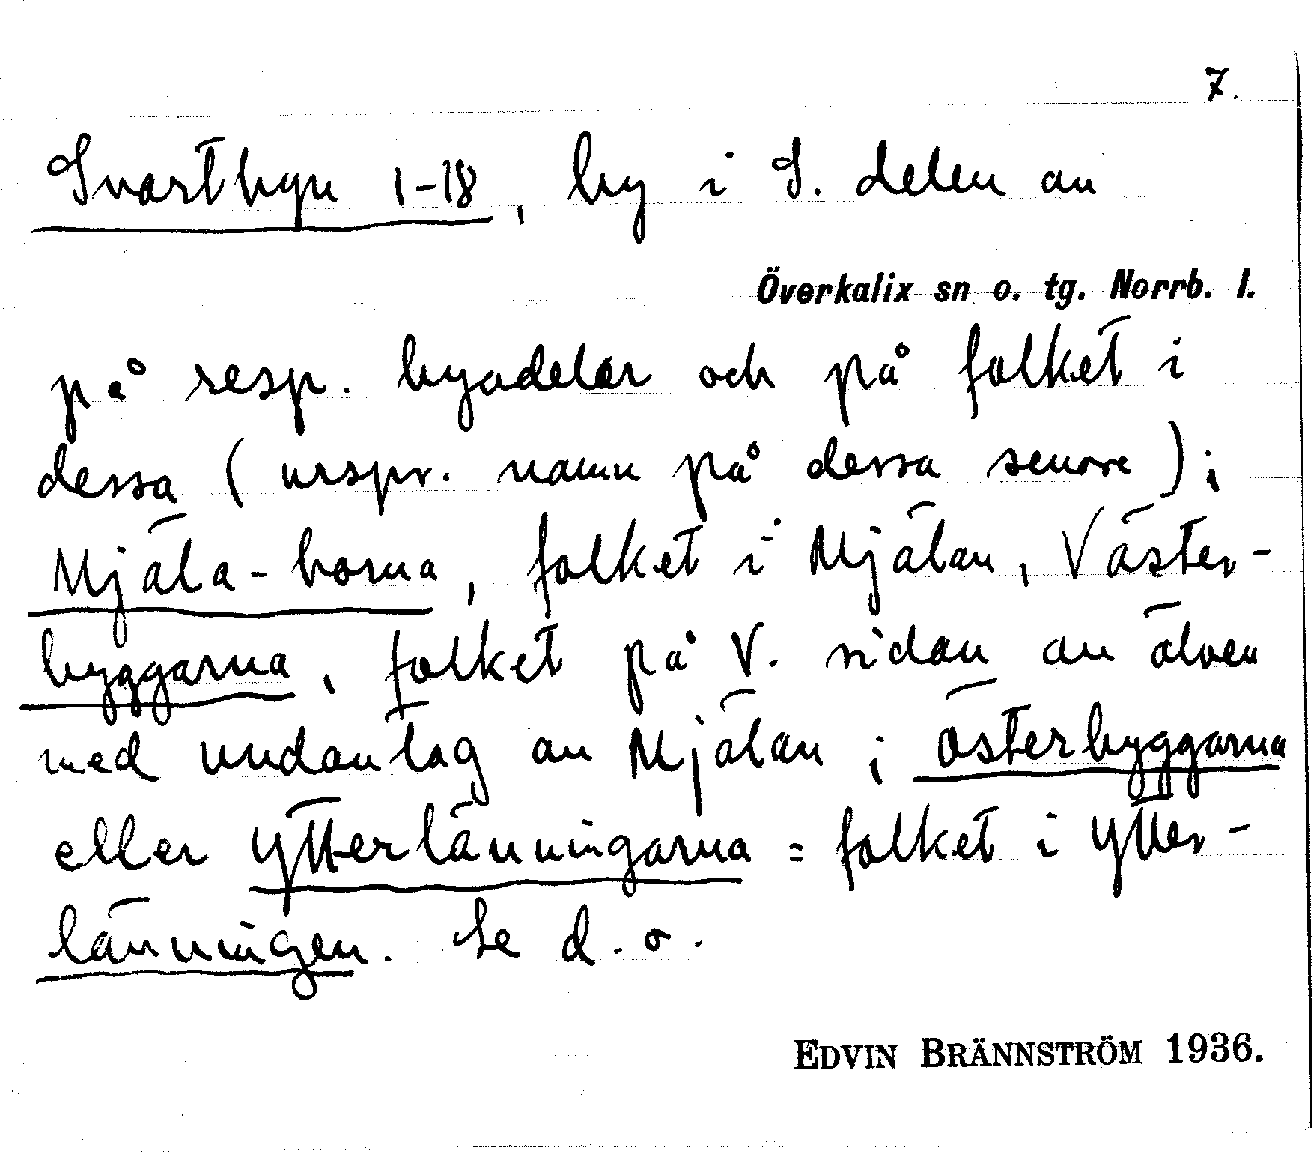 7.
Svartbyn 1-18, by i S. delen av
Överkalix sn o. tg. Norrb. l.
på resp. byadelar och på folket i
dessa (urspr. namn på dessa senare);
Mjäla-borna, folket i Mjälan, Väster-
byggarna, folket på V. sidan av älven
med undantag av Mjälan; österbyggarna
eller ytterlänningarna = folket i ytter-
länningen. Se d. o.
EDVIN BRÄNNSTRÖM 1936.